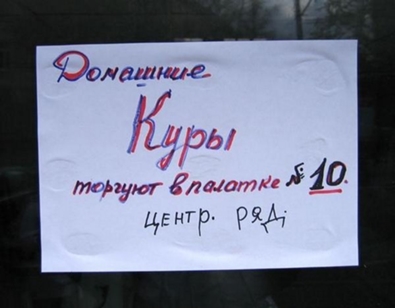 Домашние
Куры
торгуют в палатке № 10.
центр. ряд;